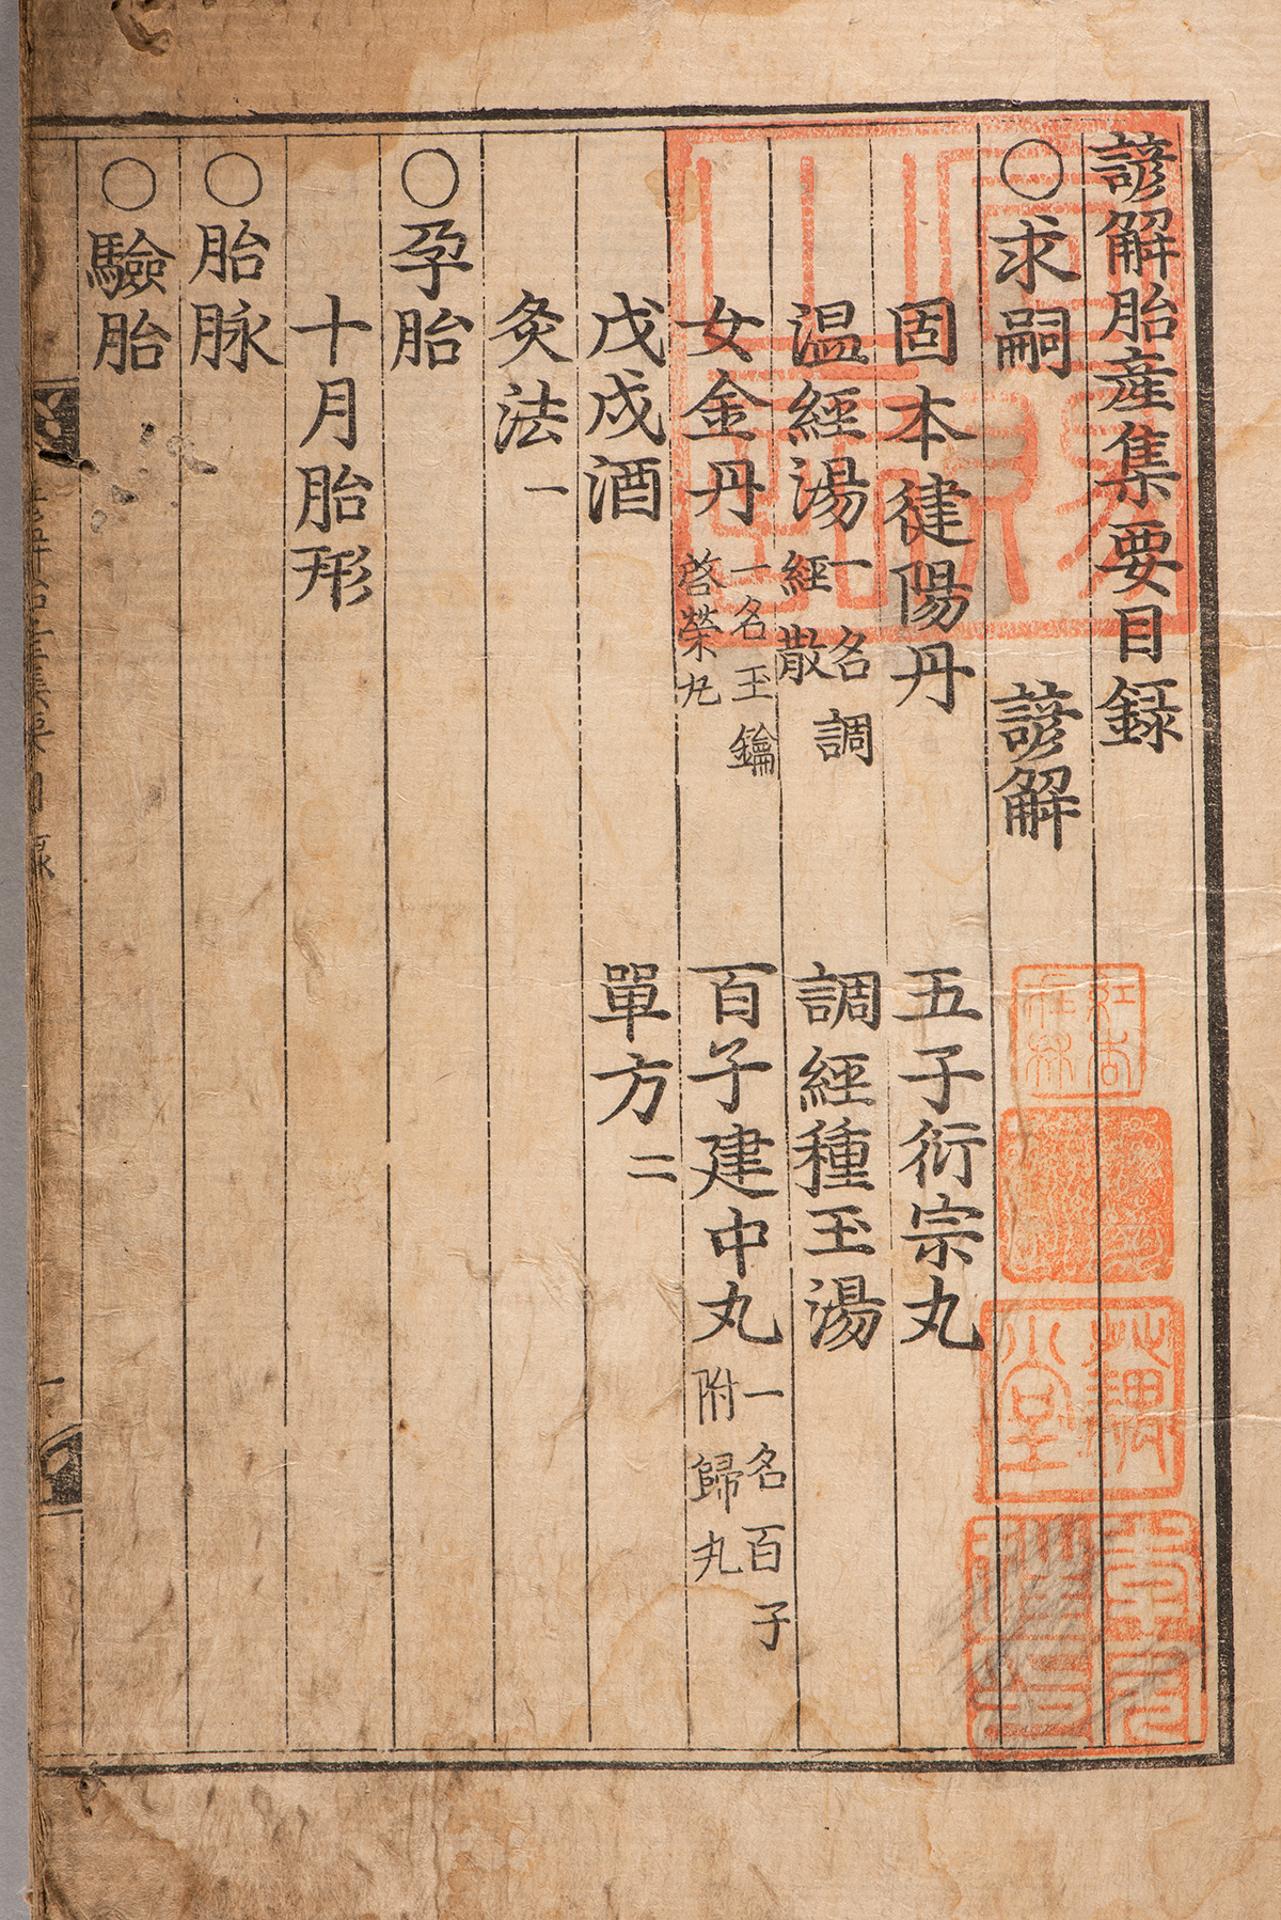 諺解胎産集要目録
○求嗣 諺解
固本健陽丹 五子衍宗丸
温經湯 一名調經散 調經種玉湯
女金丹 一名玉鑰啓榮丸 百子建中丸 一名百子附歸丸
戊戍酒 單方 二
灸法 一
○孕胎
十月胎形
○胎脉
○驗胎